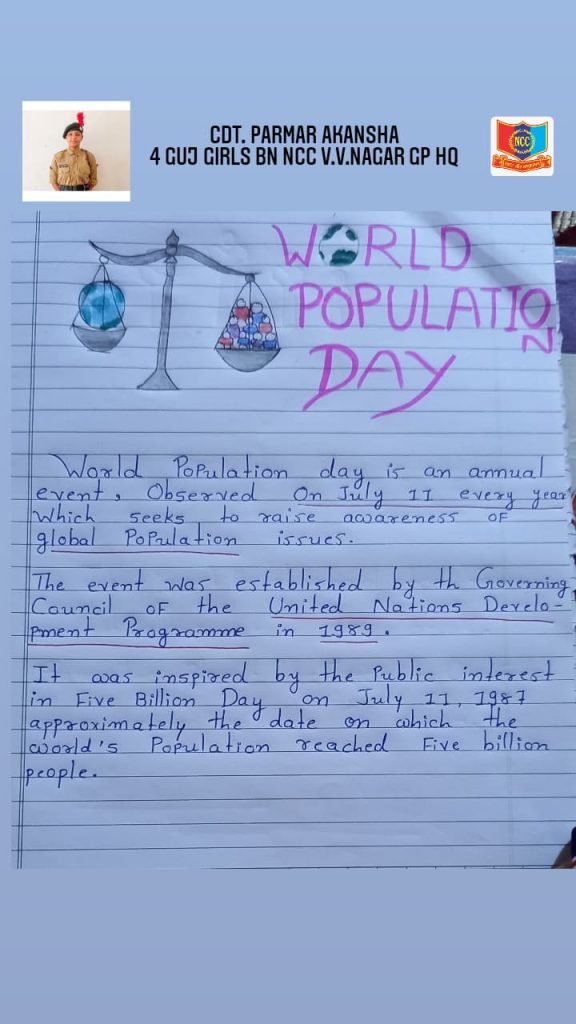 CDT. PARMAR AKANSHA
4 GUJ GIRLS BN NCC V.V.NAGAR GP HQ
NCC
WORLD
POPULATIO
N
DAY
World Population day is an annual
event, Observed On July 11 every year
Which seeks to raise awareness OF
global Population issues.
The event was established by th Governing
Council OF the United Nations Develo-
pment Programme in 1989.
It was inspired by the Public interest
in Five Billion Day on July 11, 1987
approximately the date on which the
world's Population reached Five billion
people.